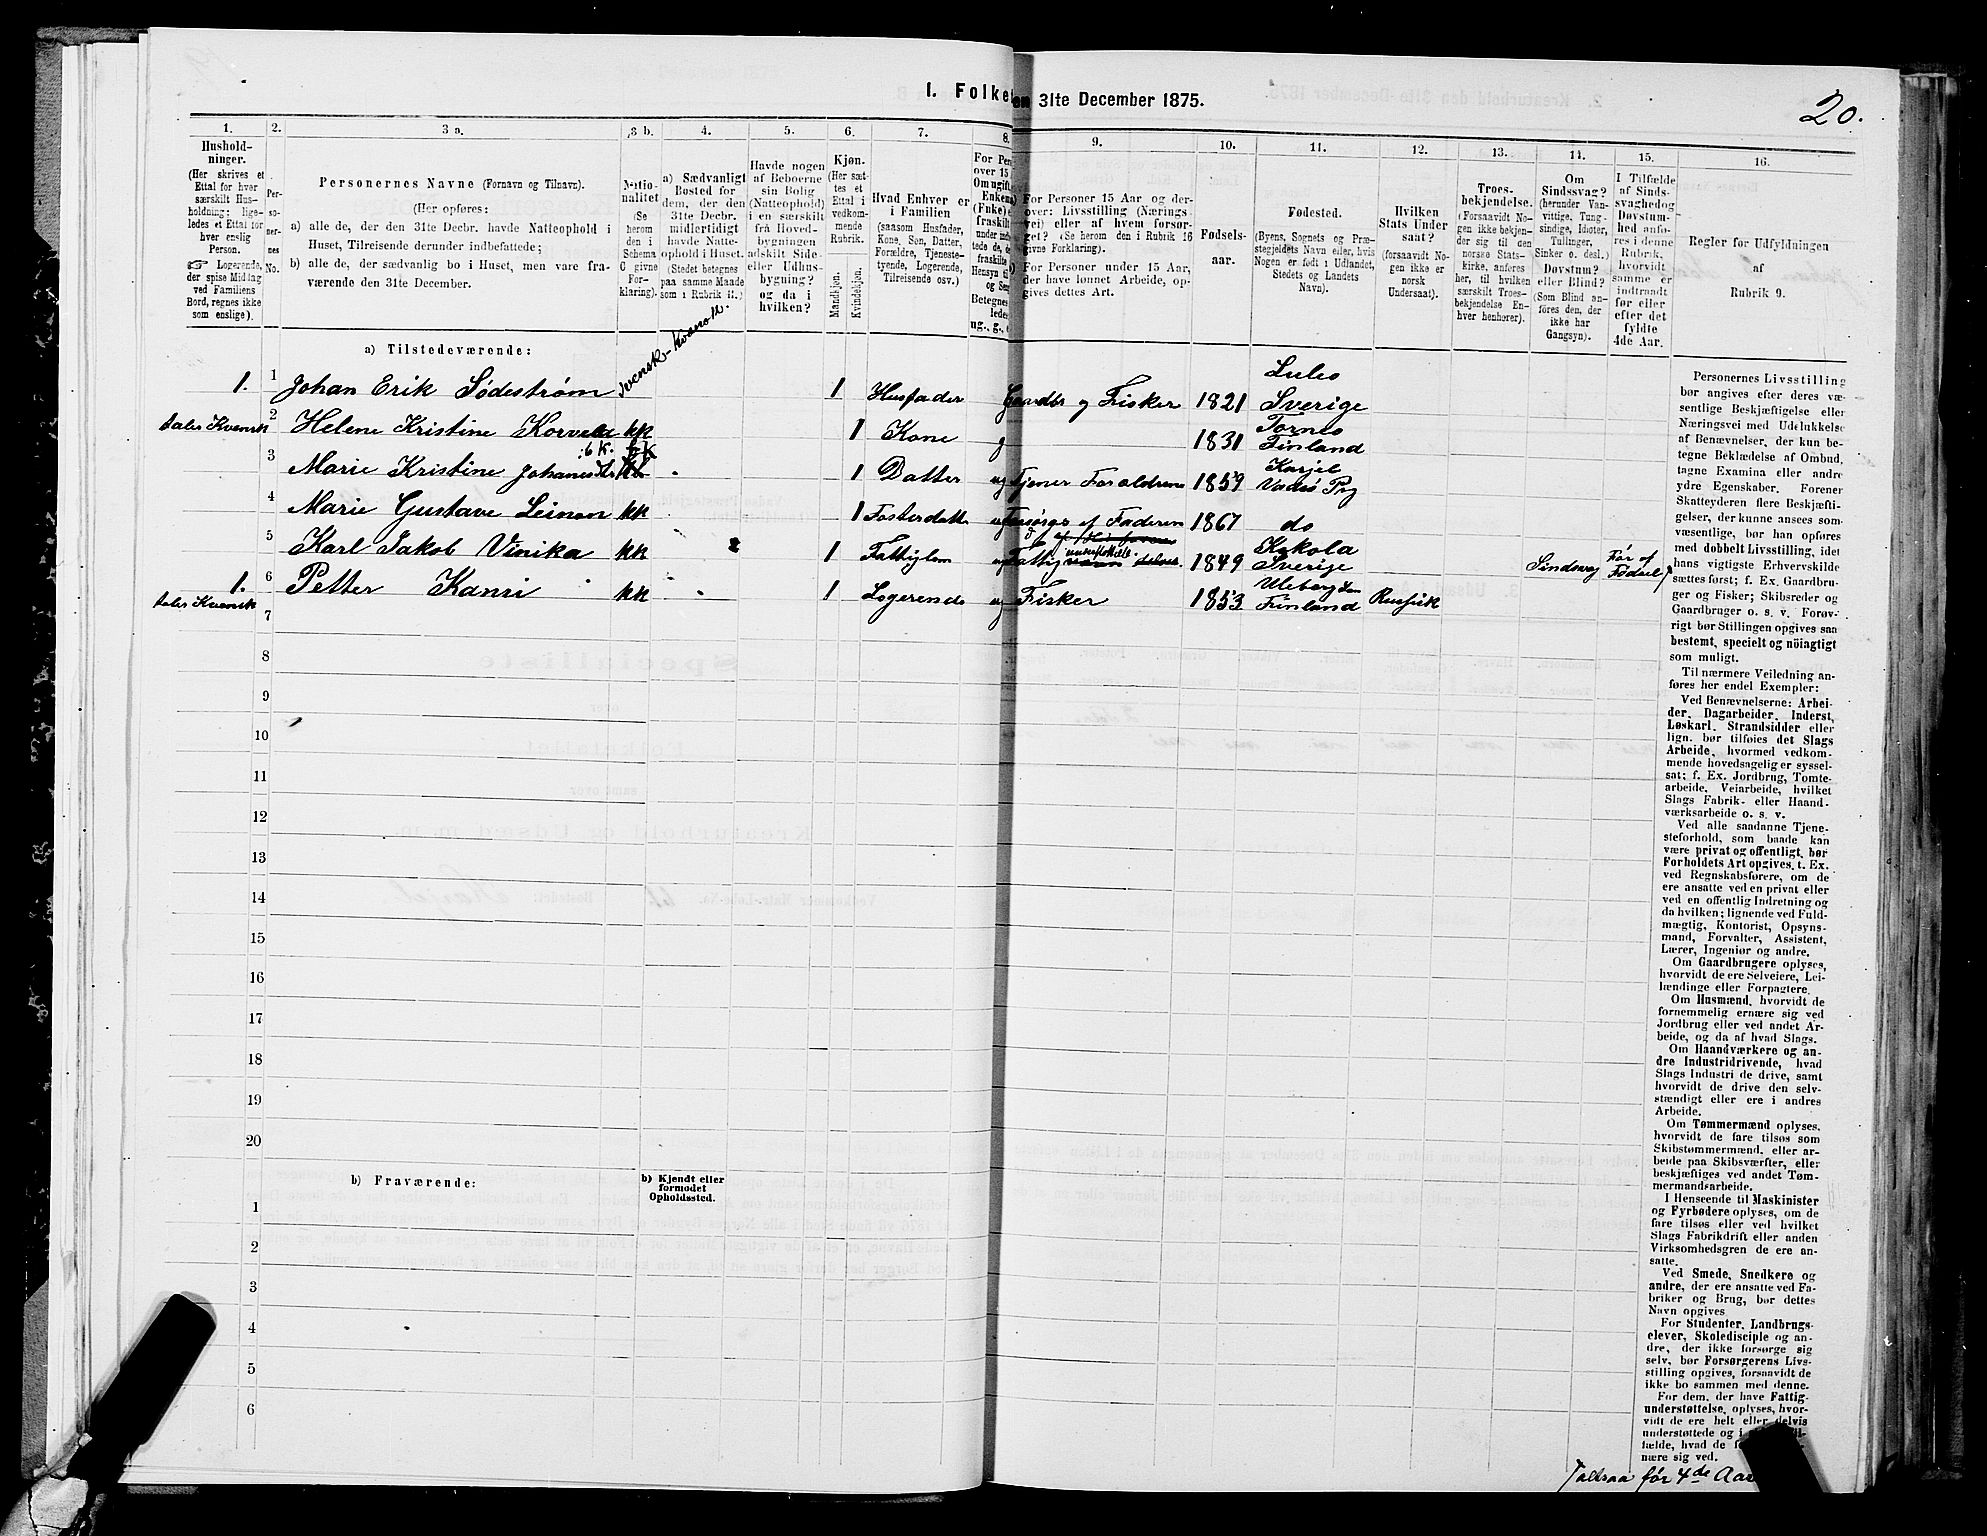 1. Folke
en 31te December 1875.
20.
1.
2.
3 a.
3 b.
4.
5.
6.
7.
8.
9.
10.
11.
12.
13.
14.
15.
16.
Hushold-
ninger.
(Her skrives et
Ettal for hver
særskilt Hus-
holdning; lige-
ledes et Ettal for
hver enslig
Person.
☞ Logerende,
der spise Middag
ved Familiens
Bord, regnes ikke
som enslige).
Per-
so-
ner-
nes
No.
Personernes Navne (Fornavn og Tilnavn).
(Her opføres:
a) alle de, der den 31te Decbr. havde Natteophold i
Huset, Tilreisende derunder indbefattede;
b) alle de, der sædvanlig bo i Huset, men vare fra-
værende den 31te December.
Natio-
nalitet
(Se
herom
den i
Schema
C givne
For-
klaring).
a) Sædvanligt
Bosted for
dem, der den
31te Decbr.
midlertidigt
havde Natte-
ophold i Huset.
(Stedet betegnes
paa samme Maade
som i Rubrik 11.)
Havde nogen
af Beboerne
sin Bolig
(Natteophold)
i en særskilt
frå Hoved-
bygningen
adskilt Side-
eller Udhus-
bygning?
og da i
hvilken?
Kjøn.
(Her sæt-
tes et
Ettal i
vedkom-
mende
Rubrik.
Mandkjøn.
Kvindekjøn.
Hvad Enhver er
i Familien
(saasom Husfader,
Kone, Søn, Datter,
Forældre, Tjeneste-
tyende, Logerende,
Tilreisende osv.)
For Per
over 15
Om ugift
Enkem
(Fnke)
fraskilt
under ind
tede de,
fraskilte
Hensyn ti
og Sen
Betegnes
ledes
ug., g.,
For Personer 15 Aar og der-
over: Livsstilling (Nærings-
vei) eller af hvem forsør-
get? (Se herom den i Rubrik 16
givne Forklaring).
For Personer under 15 Aar,
der have lønnet Arbeide, op-
gives dettes Art.
Fødsels-
aar.
Fødested.
(Byens, Sognets og Præ-
stegjeldets Navn eller, hvis
Nogen er født i Udlandet,
Stedets og Landets
Navn).
Hvilken
Stats Under
saat?
(forsaavidt No-
gen ikke er
norsk
Undersaat).
Troes-
bekjendelse.
(Forsaavidt No-
gen ikke bekjen-
der sig til den
norske Stats-
kirke, anføres
her, til hvilken
særskilt Troes-
bekjendelse En-
hver henhører).
Om
Sindssvag?
(herunder Van-
vittige, Tung-
sindige, Idioter,
Tullinger,
Sinker o. desl.)
Døvstum?
eller Blind?
(Som Blind an-
føres den, der
ikke har
Gangsyn).
I Tilfælde
af Sinds-
svaghed og
Døvstum-
hed anfø-
res i denne
Rubrik,
hvorvidt
samme er
indtraadt
før eller
efter det
fyldte
4de Aar.
Regler for Udfyldningen
af
Rubrik 9.
a) Tilstedeværende:
1. 1 Johan Erik Sødestrøm Svensk-Kvensk 1 Husfader Gaardbr og Fisker 1821 Luleo Sverige
taler Kvensk 2 Helene Kristine Korvela kk 1 Kone g 1831 Torneo Finland
3 Marie Kristine Johanesdtr 1 Datter ug Tjener Forældrene 1859 Karjel Vadsø Prg
4 Marie Gustave Leinon kk 1 Fosterdatte ug Forsørges af Faderen 1867 do
5 Karl Jakob Vinika kk 1 Fattiglem ug Fattig understøtt. delvis. 1849 Kokola Sverige Sindsvag Før af Fødsel
1. 6 Petter Kansi kk 1 Logerende ug Fisker 1853 Uleborg Len Finland Russisk
taler Kvensk
7
8
9
10
11
12
13
14
15
16
17
18
19
20
b) Fraværende:
b) Kjendt eller
formodet
Opholdssted.
1
2
3
4
5
6
Personernes Livsstilling
bør angives efter deres væ-
sentlige Beskjæftigelse eller
Næringsvei med Udelukkelse
af Benævnelser, der kun be-
tegne Beklædelse af Ombud,
tagne Examina eller andre
ydre Egenskaber. Forener
Skatteyderen flere Beskjæfti-
gelser, der kunne ansees som
væsentlige, bør han opføres
med dobbelt Livsstilling, idet
hans vigtigste Erhvervskilde
sættes først; f. Ex. Gaardbru-
ger og Fisker; Skibsreder og
Gaardbruger o. s. v. Forøv-
rigt bør Stillingen opgives saa
bestemt, specielt og nöiagtigt
som muligt.
Til nærmere Veiledning an-
føres her endel Exempler:
Ved Benævnelserne: Arbei-
der, Dagarbeider, Inderst,
Løskarl, Strandsidder eller
lign. bør tilføies det Slags
Arbeide, hvormed vedkom-
mende hovedsagelig er syssel-
sat; f. Ex. Jordbrug, Tomte-
arbeide, Veiarbeide, hvilket
Slags Fabrik- eller Haand-
værksarbeide o. s. v.
Ved alle saadanne Tjene-
steforhold, som baade kan
være privat og offentligt, bør
Forholdets Art opgives, t. Ex.
ved Regnskabsførere, om de
ere ansatte ved en privat eller
ved en offentlig Indretning og
da hvilken; lignende ved Fuld-
mægtig, Kontorist, Opsyns-
mand, Forvalter, Assistent,
Lærer, Ingeniør og andre.
Om Gaardbrugere oplyses,
hvorvidt de ere Selveiere, Lei-
lændinge eller Forpagtere.
Om Husmænd, hvorvidt de
fornemmelig ernære sig ved
Jordbrug eller ved andet Ar-
beide, og da af hvad Slags.
Om Haandværkere og an-
dre Industridrivende, hvad
Slags Industri de drive, samt
hvorvidt de drive den selv-
stændigt eller ere i andres
Arbeide.
Om Tømmermænd oplyses,
hvorvidt de fare tilsøs som
Skibstømmermænd, eller ar-
beide paa Skibsværfter, eller
beskjæftiges ved andet Tøm-
mermandsarbeide.
I Henseende til Maskinister
og Fyrbødere oplyses, om de
fare tilsøs eller ved hvilket
Slags Fabrikdrift eller anden
Virksomhedsgren de ere an-
satte.
Ved Smede, Snedkere og
andre, der ere ansatte ved Fa-
briker og Brug, bør dettes
Navn opgives
For Studenter, Landbrugs-
elever, Skoledisciple og an-
dre, der ikke forsørge sig
selv, bør Forsørgerens Livs-
stilling opgives, forsaavidt de
ikke bo sammen med denne.
For dem, der have Fattig-
understøttelse, oplyses, hvor-
vidt de ere helt eller delvis
understøttede og i
fælde, hvad de
nære sig ved.
altsaa før 4de Aar